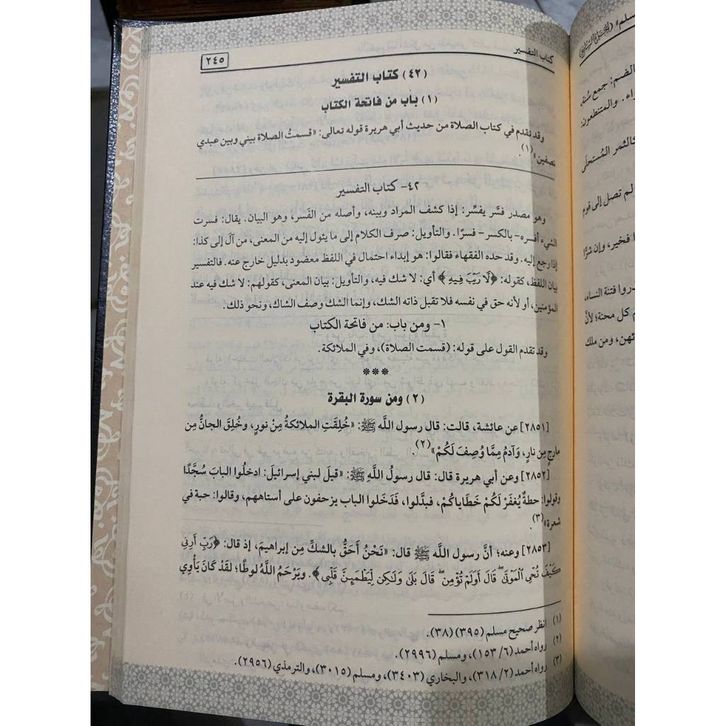 كتاب التفسير
٢٤٥
(٤٢) كتاب التفسير
(١) باب من فاتحة الكتاب
وقد تقدم في كتاب الصلاة من حديث أبي هريرة قوله تعالى: «قسمتُ الصلاة بيني وبين عبدي
نصفين»(١).
٤٢- كتاب التفسير
وهو مصدر فسَّر يفسِّر: إذا كشف المراد وبينه، وأصله من الفَسر، وهو البيان. يقال: فسرت
الشيء أفسره- بالكسر- فسرًا. والتأويل: صرف الكلام إلى ما يئول إليه من المعنى، من آل إلى كذا:
إذا رجع إليه. وقد حده الفقهاء فقالوا: هو إبداء احتمال في اللفظ معضود بدليل خارج عنه. فالتفسير
بيان اللفظ، كقوله: ﴿لَا رَيْبَ فِيهِ﴾ أي: لا شك فيه، والتأويل: بيان المعنى، كقولهم: لا شك فيه عند
المؤمنين، أو لأنه حق في نفسه فلا تقبل ذاته الشك، وإنما الشك وصف الشاك، ونحو ذلك.
١- ومن باب: من فاتحة الكتاب
وقد تقدم القول على قوله: (قسمت الصلاة)، وفي الملائكة.
***
(٢) ومن سورة البقرة
[٢٨٥١] عن عائشة، قالت: قال رسول اللَّه ﷺ: «خُلِقَتِ الملائكةُ مِنْ نورٍ، وخُلِقَ الجانُّ مِن
مارجٍ مِن نارٍ، وآدمُ مِمَّا وُصِفَ لَكُمْ»(٢).
[٢٨٥٢] وعن أبي هريرة قال: قال رسولُ اللَّه ﷺ: «قيلَ لبني إسرائيلَ: ادخلُوا البابَ سُجَّدًا
وقولوا: حطةٌ يُغفَرْ لَكُمْ خَطَاياكُمْ، فبدَّلوا، فَدَخَلُوا الباب يزحفون على أستاههم، وقالوا: حبة في
شعرة»(٣).
[٢٨٥٣] وعنه؛ أنَّ رسول اللَّه ﷺ قال: «نَحْنُ أَحَقُّ بالشكِّ مِن إبراهيمَ، إذ قال: ﴿رَبِّ أَرِنِي
كَيْفَ تُحْيِ الْمَوْتَى قَالَ أَوَلَمْ تُؤْمِنْ قَالَ بَلَى وَلَكِنْ لِيَطْمَئِنَّ قَلْبِي﴾. ويَرْحَمُ اللَّهُ لُوطًا؛ لَقَدْ كَانَ يَأْوِي
(١) انظر صحيح مسلم (٣٩٥) (٣٨).
(٢) رواه أحمد (٦/ ١٥٣)، ومسلم (٢٩٩٦).
(٣) رواه أحمد (٢/ ٣١٨)، والبخاري (٣٤٠٣)، ومسلم (٣٠١٥)، والترمذي (٢٩٥٦).
مسلم؛
الضم: جمع سُنة،
والمتنطعون:
كالثمر المُستحلَى
لم تصل إلى قوم
فخير، وإن شرًا
فتنة النساء،
كل محنة؛ لأنَّ
ومن ملك